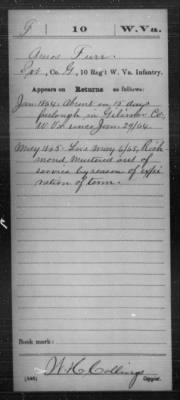 F 10 W.Va.
Amos Furr.
Pvt., Co. G, 10 Reg't W. Va. Infantry.
Appears on Returns as follows:
Jan. 1864. Absent on 15 days
furlough in Gilmer Co,
W Va since Jan. 29/64.
May 1865. Loss May 6/65, Rich
mond, Mustered out of
service by reason of expi
ration of term.
Book mark:
W. H. Collings
(546) Copyist.